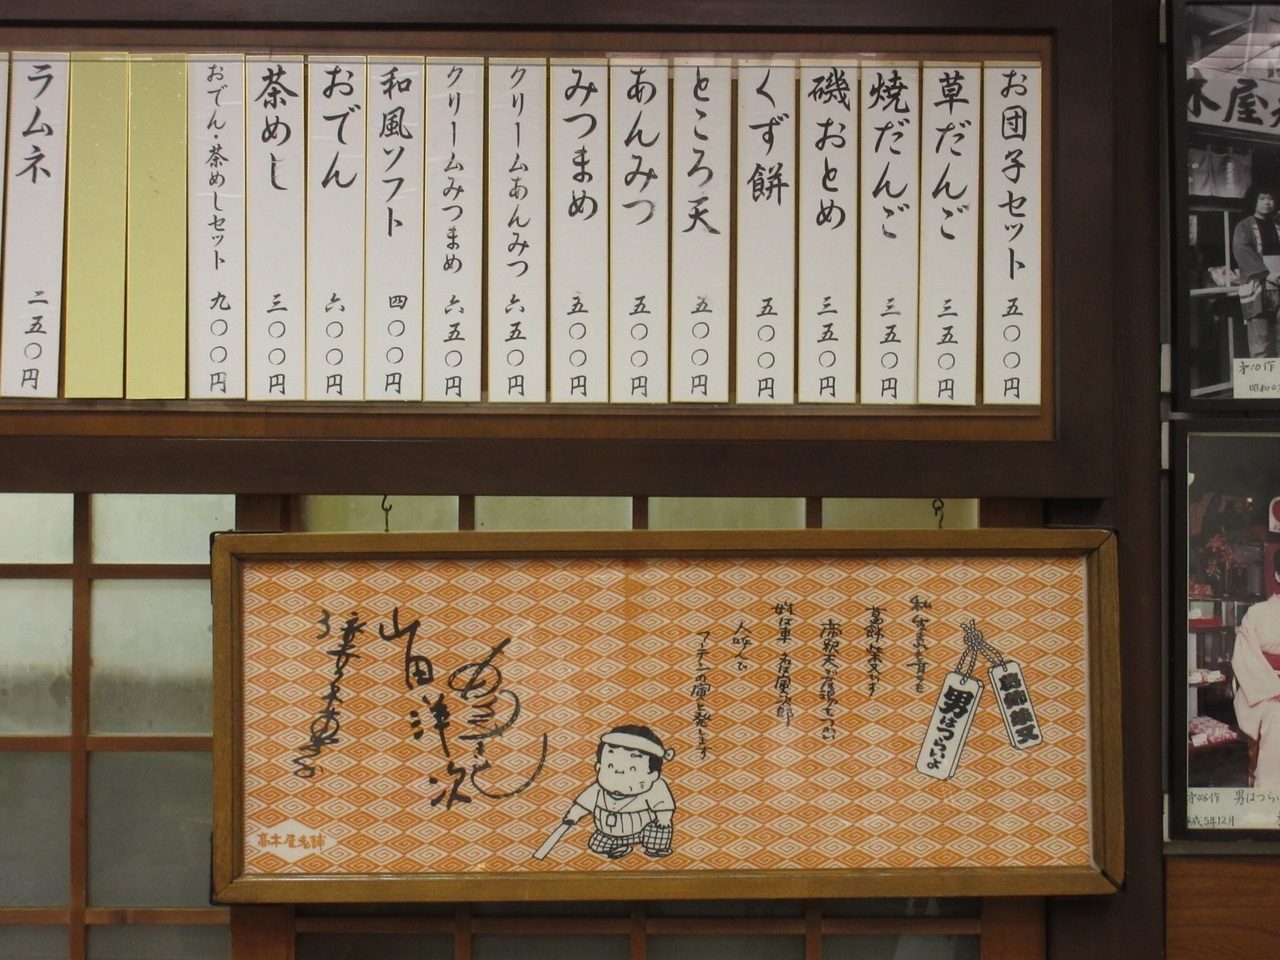 お団子セット 五〇〇円
草だんご 三五〇円
焼だんご 三五〇円
磯おとめ 三五〇円
くず餅 五〇〇円
ところ天 五〇〇円
あんみつ 五〇〇円
みつまめ 五〇〇円
クリームあんみつ 六五〇円
クリームみつまめ 六五〇円
和風ソフト 四〇〇円
おでん 六〇〇円
茶めし 三〇〇円
おでん・茶めしセット 九〇〇円
ラムネ 二五〇円
木屋
才10作
昭和
葛飾柴又
男はつらいよ
私
葛飾柴又
姓は車 名は寅次郎
人呼び
フーテンの寅と発します
山田洋次
髙木屋老舗
才46作 男はつら
平成5年12月